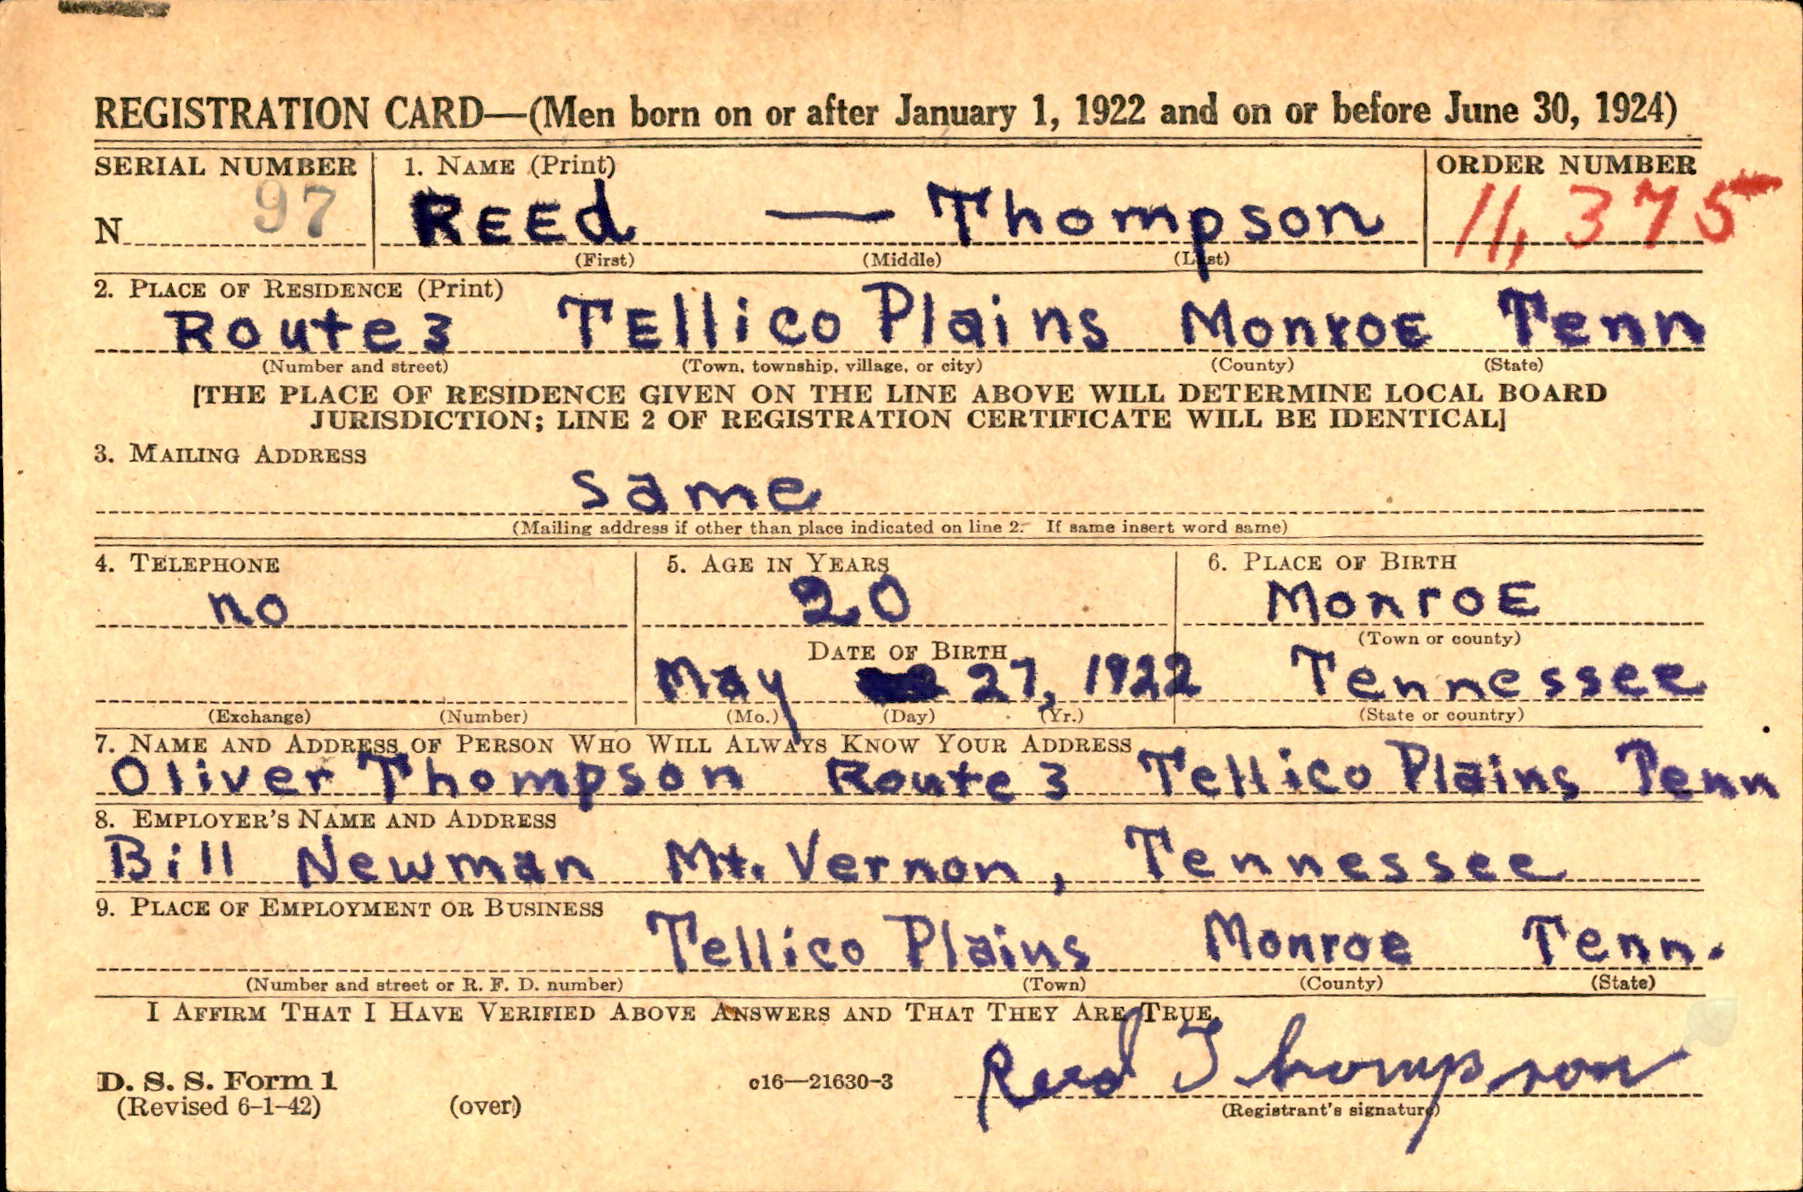 REGISTRATION CARD—(Men born on or after January 1, 1922 and on or before June 30, 1924)
SERIAL NUMBER 1. NAME (Print) ORDER NUMBER
N 97 REEd — Thompson 11,375
(First) (Middle) (Last)
2. PLACE OF RESIDENCE (Print)
Route 3 TEllico Plains MonroE Tenn
(Number and street) (Town, township, village, or city) (County) (State)
[THE PLACE OF RESIDENCE GIVEN ON THE LINE ABOVE WILL DETERMINE LOCAL BOARD
JURISDICTION; LINE 2 OF REGISTRATION CERTIFICATE WILL BE IDENTICAL]
3. MAILING ADDRESS
same
(Mailing address if other than place indicated on line 2. If same insert word same)
4. TELEPHONE 5. AGE IN YEARS 6. PLACE OF BIRTH
no 20 MonroE
DATE OF BIRTH (Town or county)
May 27, 1922 Tennessee
(Exchange) (Number) (Mo.) (Day) (Yr.) (State or country)
7. NAME AND ADDRESS OF PERSON WHO WILL ALWAYS KNOW YOUR ADDRESS
Oliver Thompson Route 3 Tellico Plains Tenn
8. EMPLOYER'S NAME AND ADDRESS
Bill Newman Mt. Vernon, Tennessee
9. PLACE OF EMPLOYMENT OR BUSINESS
Tellico Plains Monroe Tenn.
(Number and street or R. F. D. number) (Town) (County) (State)
I AFFIRM THAT I HAVE VERIFIED ABOVE ANSWERS AND THAT THEY ARE TRUE.
Reed Thompson
D. S. S. Form 1 c16—21630-3
(Revised 6-1-42) (over) (Registrant's signature)